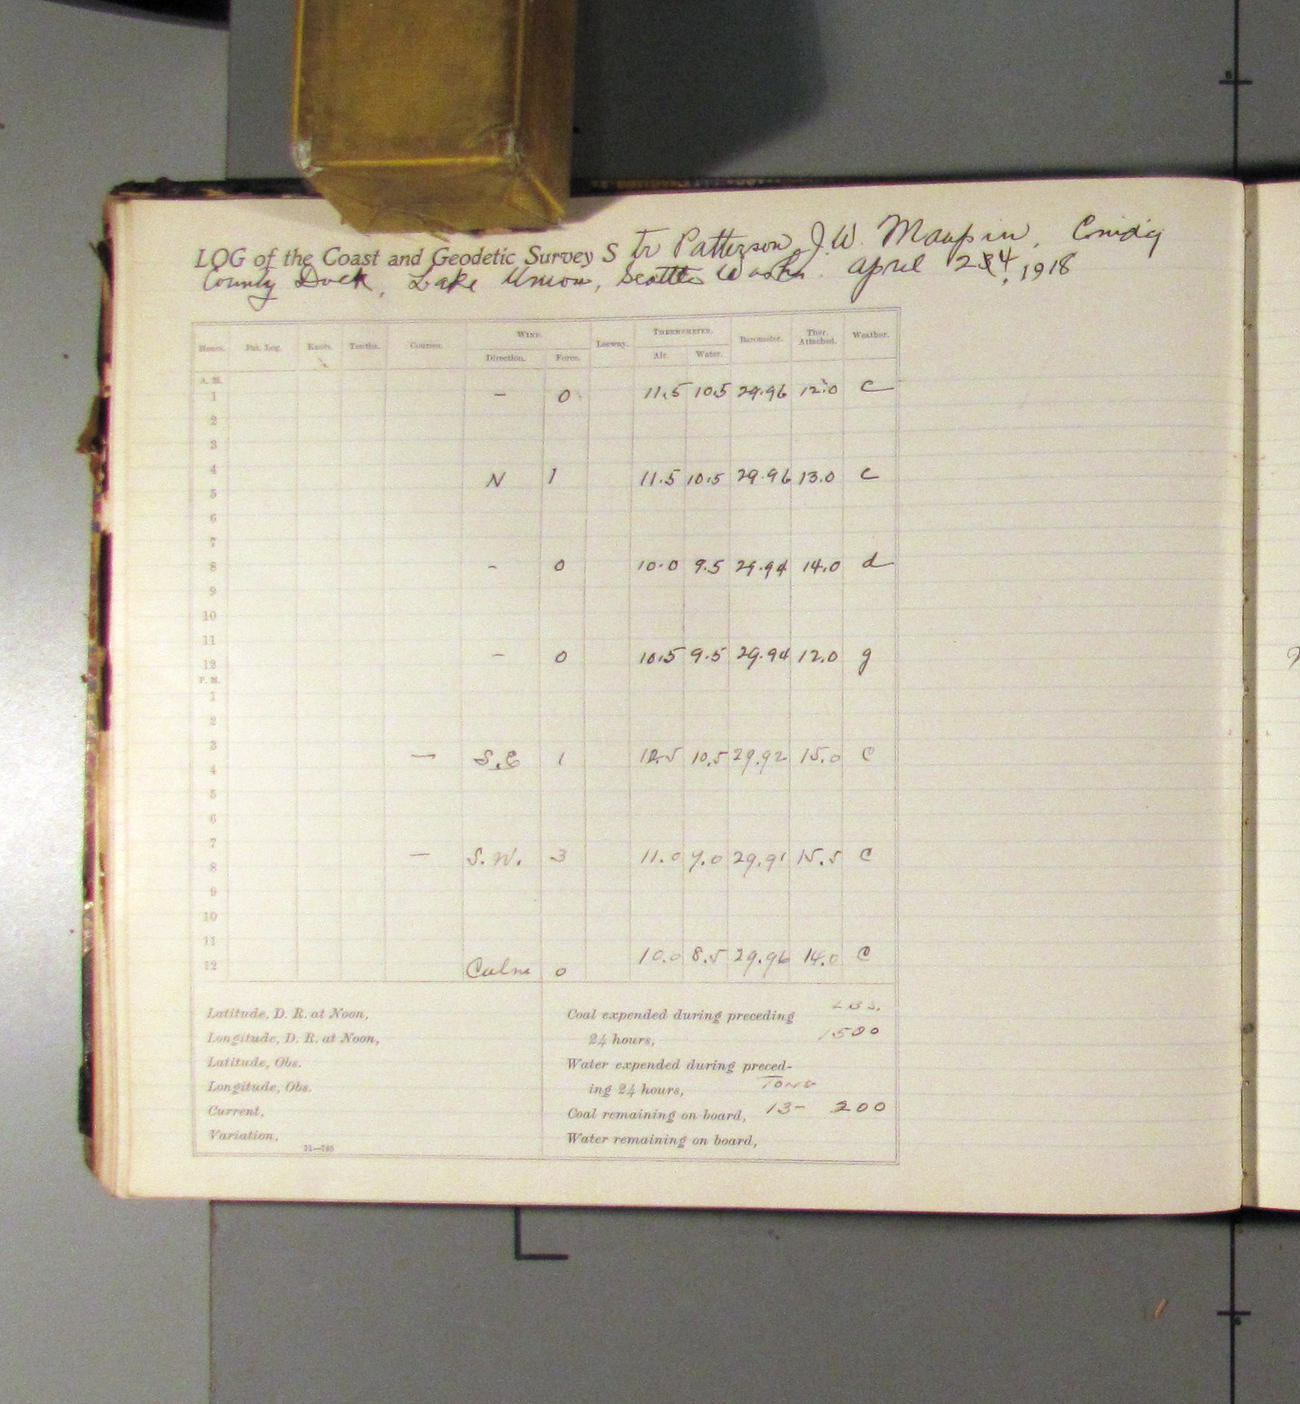 LOG of the Coast and Geodetic Survey S tr Patterson, J. W. Maupin, Cmdg
County Dock, Lake Union, Seattle Wash. April 24, 1918
Hours. Pat. Log. Knots. Tenths. Courses. WIND. Leeway. THERMOMETER. Barometer. Ther. Attached. Weather.
Direction. Force. Air. Water.
A. M.
1 – 0 11.5 10.5 29.96 12.0 c
2
3
4 N 1 11.5 10.5 29.96 13.0 c
5
6
7
8 – 0 10.0 9.5 29.94 14.0 d
9
10
11
12 – 0 10.5 9.5 29.94 12.0 g
P. M.
1
2
3
4 — S.E 1 12.5 10.5 29.92 15.0 C
5
6
7
8 — S.W. 3 11.0 9.0 29.91 15.5 C
9
10
11
12 Calm 0 10.0 8.5 29.96 14.0 C
Latitude, D. R. at Noon,
Longitude, D. R. at Noon,
Latitude, Obs.
Longitude, Obs.
Current,
Variation,
11—785
Coal expended during preceding LBS.
24 hours, 1500
Water expended during preced-
ing 24 hours, TONS
Coal remaining on board, 13– 200
Water remaining on board,